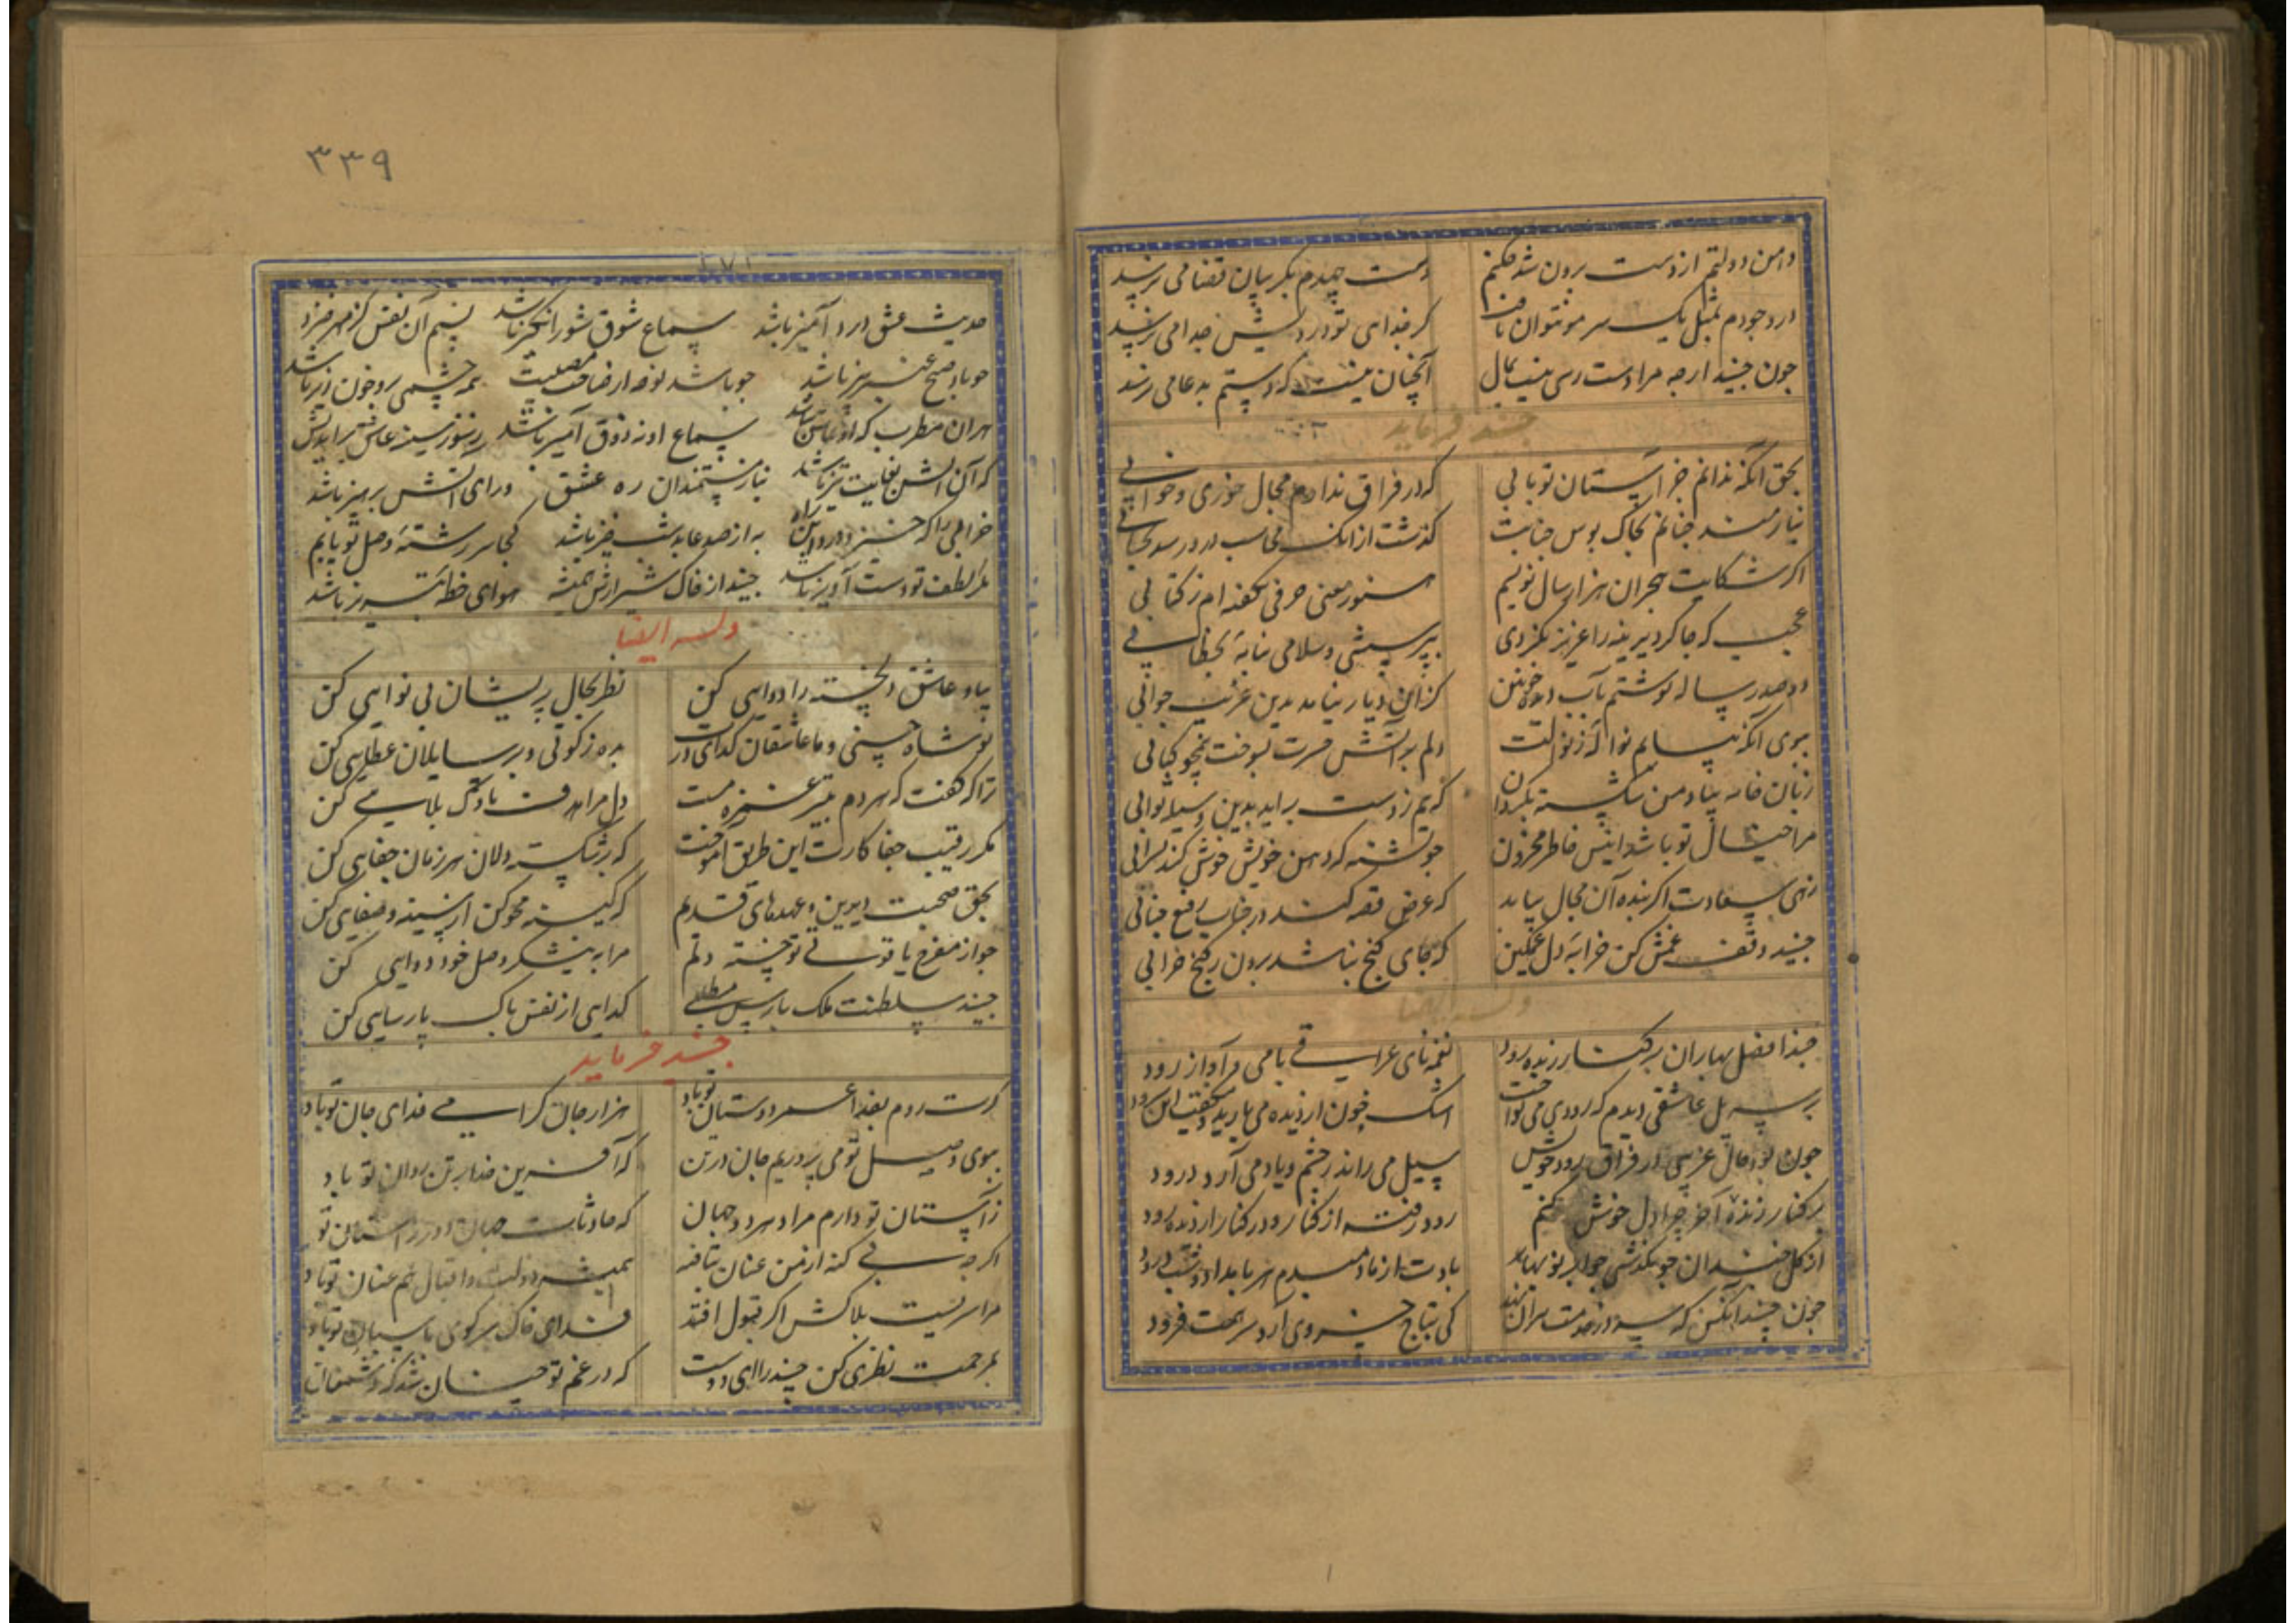 دامن دولتم از دست برون شد چکنم دست جهدم بگریبان قضا می نرسد
در وجودم بمثل یک سر مو نتوان یافت کر غذای تو درد پیش جدا می نرسد
جون جنید ارجه مرا دست رسی نیست بمال آنچنان نیست که دستم به دعا می نرسد
جنید فرماید
بحق آنکه ندانم جز آستان تو بابی که در فراق ندارم مجال خوری و خوابی
نیازمند جنانم بخاک بوس جنابت کذشت از آنک محاسب درو رسد بحسابی
اکر شکایت هجران هزار سال نویسم هنوز معنی حرفی نکفته ام ز کتابی
عجب که جاکر دیرینه را عزیز نکردی بپرسشی و سلامی بنامهٔ بخطابی
دو صد رساله نوشتم بآب دیده خونین کزان دیار نیامد بدین غریب جوابی
ببوی آنکه دلم بر آتش حسرت بسوخت همچو کبابی
زبان خامه بیاد من شکسته بکردان
مرا خیال تو باشد انیس خاطر محزون جو تشنه که دهن خویش خوش کند بسرابی
زهی سعادت اکر بنده آن مجال بیابد که عرض قصه کند در جناب رفیع جنابی
جنید وقف غمش کن خرابهٔ دل غمکین که جای کنج نباشد برون ز کنج خرابی
وله ایضا
حبذا فصل بهاران بر کنار زنده رود نغمهای عراقی با می و آواز رود
بر سر پل عاشقی دیدم که رودی می نواخت اشک خون از دیده می بارید و میکفت این سرود
جون بود حال غریبی در فراق رود خویش سیل می راند ز چشم و یاد می آرد درود
بر کنار زنده آخر چرا دل خوش کنم رود رفته از کنار و در کنار از دیده رود
از کل خندان جو بکذشتی جو ابر نوبهار بادت از ما دمبدم هر بامداد و شب درود
جون جنید آنکس که سر در خدمت مردان نهد کی بتاج خسروی آرد سر همت فرود
۳۳۹
حدیث عشق درد آمیز باشد سماع شوق شور انکیز باشد نسیم آن نفس کز مهر خیزد
جو باد صبح عنبر بیز باشد جو باشد
هر آن مطرب که او عاشق نباشد سماع او نه ذوق آمیز باشد ز سوز سینه عاشق
که آن آتش بغایت تیز باشد نیاز مستمندان ره عشق ورای دانش و پرهیز باشد
خراباتی که به از صد عابد شب خیز باشد کجا سر رشتهٔ وصل تو یابم
مکر لطف تو دست آویز باشد جنید از خاک شیرازش همیشه هوای خطهٔ تبریز باشد
وله ایضا
بیا و عاشق دلخسته را دوایی کن نظر بحال پریشان بی نوایی کن
تو شاه حسنی و ما عاشقان کدای درت بده زکوتی و بر سایلان عطایی کن
ترا که کفت که هر دم بتیر غمزه مست دل مرا هدف ناوک بلایی کن
مکر رقیب جفا کارت این طریق آموخت که بر شکسته دلان هر زمان جفایی کن
بحق صحبت دیرین و عهدهای قدیم که کینه محو کن از سینه و صفایی کن
جو از مفرح یاقوت تو خسته دلم مرا به نیشکر وصل خود دوایی کن
جنید سلطنت ملک پارس مطلبی کدایی از نفس پاک پارسایی کن
جنید فرماید
کرت روم بفدا عمر دوستان تو باد هزار جان کرامی فدای جان تو باد
ببوی وصل تو می پروریم جان در تن که آفرین خدا بر تن و روان تو باد
ز آستان تو دارم مراد هر دو جهان که حادثات جهان دور از آستان تو
اکر جه بی کنه از من عنان بتافته همیشه دولت و اقبال هم عنان تو باد
مرا سریست بلاکش اکر قبول افتد فدای خاک سر کوی پاسبان تو باد
بمرحمت نظری کن جنید را ای دوست که در غم تو چنان شد که دشمنان